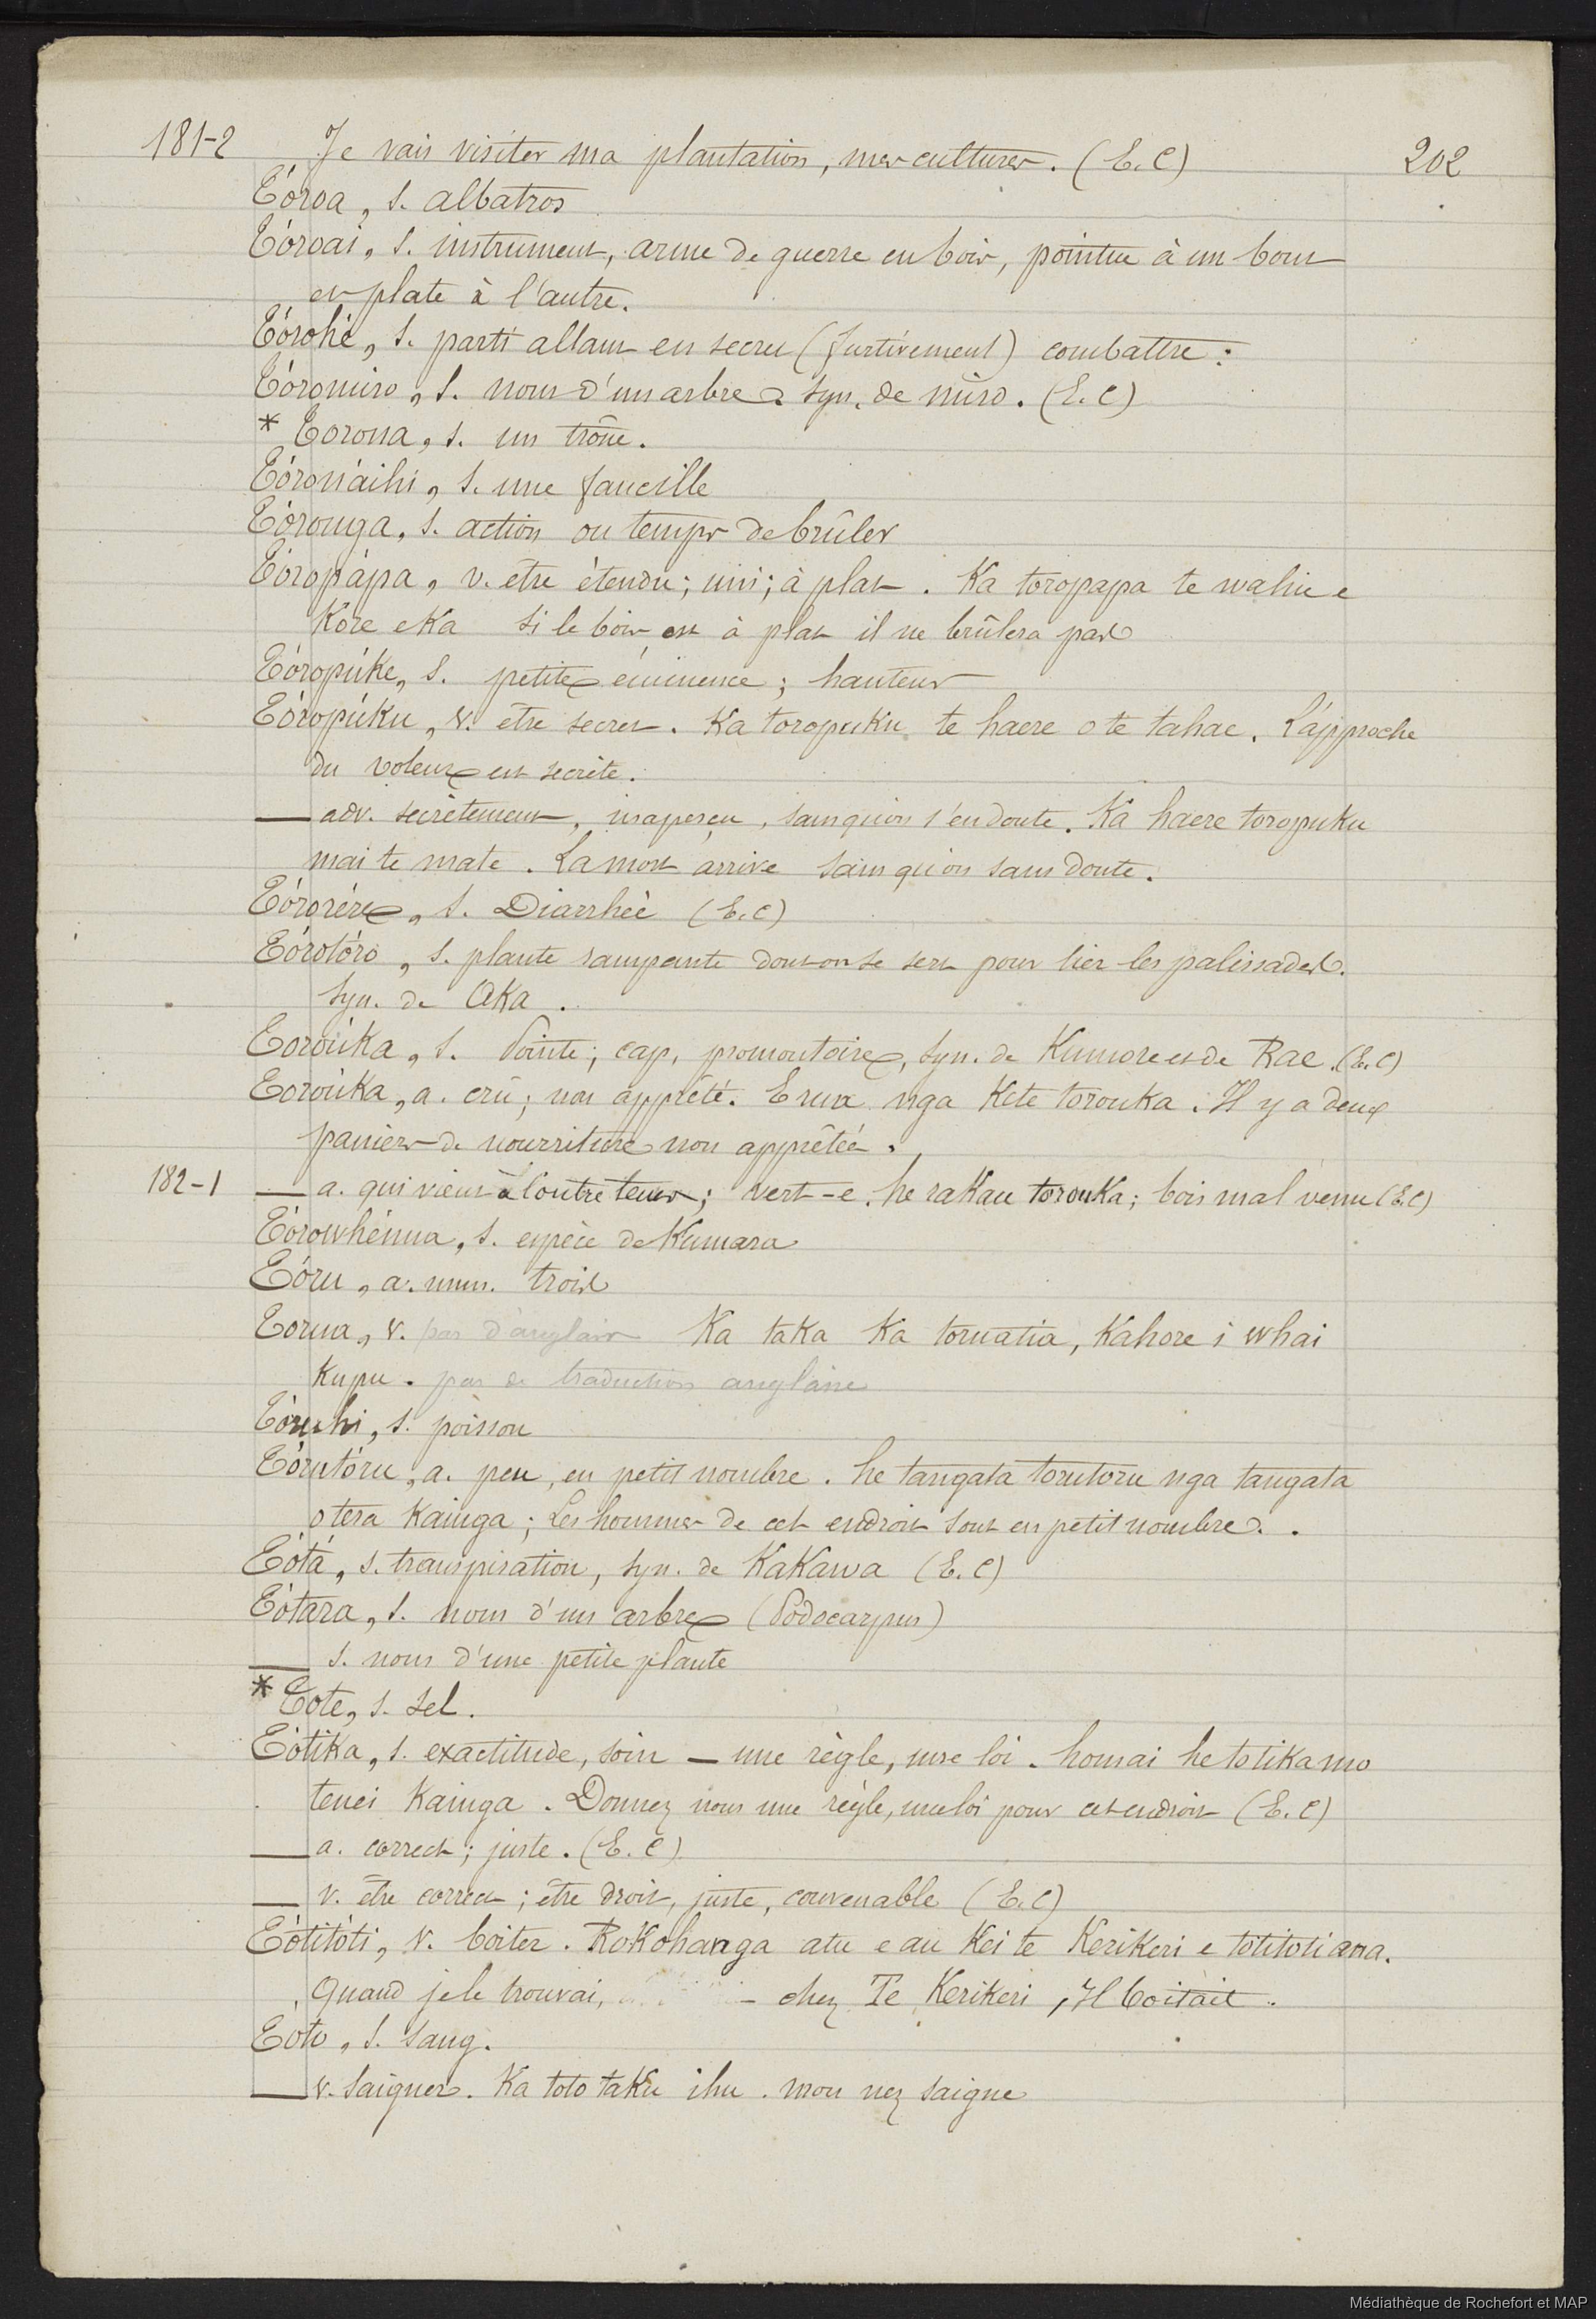 181-2 Je vais visiter ma plantation, mes cultures. (E.C) 202
Tóroa, s. albatros
Tóroai, s. instrument, arme de guerre en bois, pointue à un bout
et plate à l'autre.
Tórohé, s. parti allant en secret (furtivement) combattre :
Tóromiro, s. nom d'un arbre syn. de miro. (E.C)
* Torona, s. un trône.
Tóronáihi, s. une faucille
Tóronga, s. action ou temps de brûler
Tóropápa, v. être étendu; uni; à plat. Ka toropapa te wahie e
Kore e Ka Si le bois est à plat il ne brûlera pas
Tóropúke, s. petite éminence; hauteur
Tóropúku, v. être secret. Ka toropuku te haere o te tahae. L'approche
du voleur est secrète.
— adv. secrètement, inaperçu, sans qu'on s'en doute. Ka haere toropuku
mai te mate. La mort arrive sans qu'on sans doute.
Tórorére, s. Diarrhée (E.C)
Tórotóro, s. plante rampante dont on se sert pour lier les palissades.
Syn. de Aka.
Torouka, s. Pointe; cap, promontoire, syn. de Kumore et de Rae. (E.C)
Torouka, a. crû; non apprêté. E rua nga Kete torouka. Il y a deux
paniers de nourriture non apprêtée.
182-1 — a. qui vient à l'outre temps; vert-e. he rakau torouka; bois mal venu (E.C)
Tórowhénua, s. espèce de Kumara
Tóru, a. num. trois
Torua, v. pas d'anglais Ka taka Ka toruatia, Kahore i whai
Kupu. pas de traduction anglaise
Tóruhi, s. poisson
Tórutóru, a. peu, en petit nombre. he tangata torutoru nga tangata
o tera Kainga; Les hommes de cet endroit sont en petit nombre.
Tótá, s. transpiration, syn. de Kakawa (E.C)
Tótara, s. nom d'un arbre (Podocarpus)
— s. nom d'une petite plante
* Tote, s. sel.
Tótika, s. exactitude, soin — une règle, une loi. homai he totika mo
tenei Kainga. Donnez nous une règle, une loi pour cet endroit (E.C)
— a. correct; juste. (E.C)
— v. être correct; être droit, juste, convenable (E.C)
Tótitóti, v. boiter. Rokohanga atu e au Kei te Kerikeri e totitoti ana.
Quand je le trouvai, chez Te Kerikeri, Il boitait.
Toto, s. sang.
— v. saigner. Ka toto taku ihu. mon nez saigne
Médiathèque de Rochefort et MAP